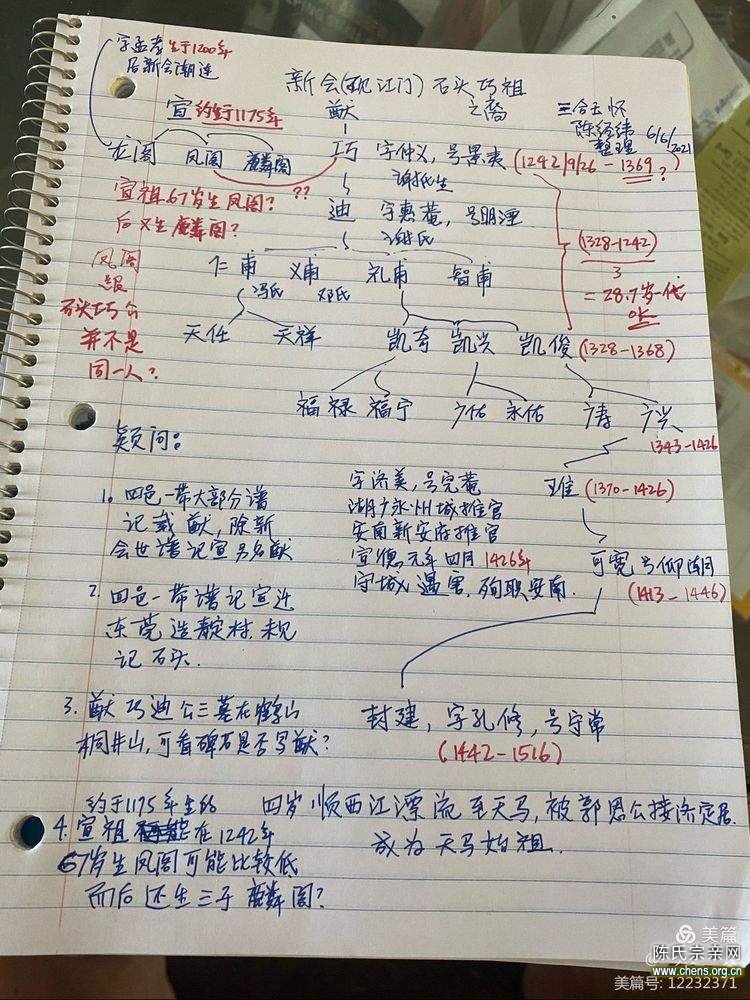 字孟孝生于1200年
居新会潮连
新会(现江门)石头巧祖
之裔
三合玉怀
陈经纬
整理 6/6/2021
宣 约生于1175年
猷
龙阁 凤阁 麟阁
巧 字仲义,号果夷 (1242/9/26-1369?)
谢氏生
宣祖67岁生凤阁? ??
后又生麟阁?
迪 字惠菴,号明湮
谢氏
凤阁
跟
石头巧公
并不是
同一人?
仁甫 义甫 礼甫 智甫
冯氏 邓氏
(1328-1242)
3
=28.7岁一代
OK
天任 天祥
凯奇 凯兴 凯俊 (1328-1368)
福禄 福宁 广佑 永佑 广寿 广兴
1343-1426
疑问:
1. 四邑一带大部分谱
记载猷,除新
会世谱记宣另名猷
2. 四邑一带谱记宣迁
东莞造靛村,未见
记石头.
3. 猷巧迪公三墓在鹤山
桐井山,可看碑石是否写猷?
字洛美,号完菴
湖广永州城推官
安南新安府推官
宣德元年四月1426年
守城遇害,殉职安南.
琟 (1370-1426)
可宽号仰潮
(1413-1446)
封建,字孔修,号守常
(1442-1516)
四岁顺西江漂流至天马,被郭恩公接济定居.
成为天马始祖.
约于1175年生的
4. 宣祖 在1242年
67岁生凤阁可能比较低
而后还生三子麟阁?
美篇
陈氏宗亲网
www.chens.org.cn
美篇号: 12232371